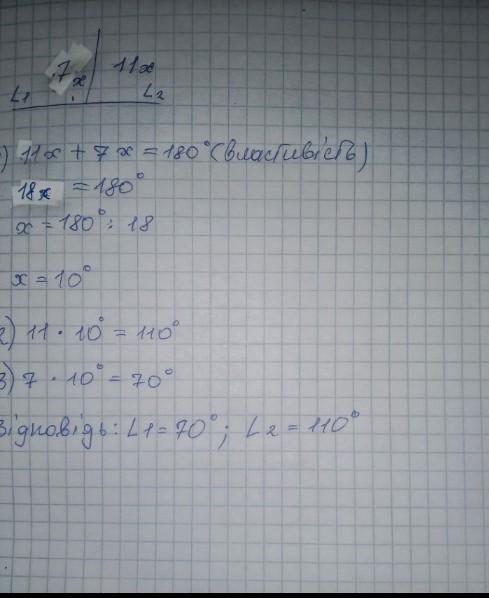 7x 11x
L1 L2
) 11x + 7x = 180° (властивість)
18x = 180°
x = 180° : 18
x = 10°
2) 11 · 10° = 110°
3) 7 · 10° = 70°
Відповідь: L1 = 70° ; L2 = 110°